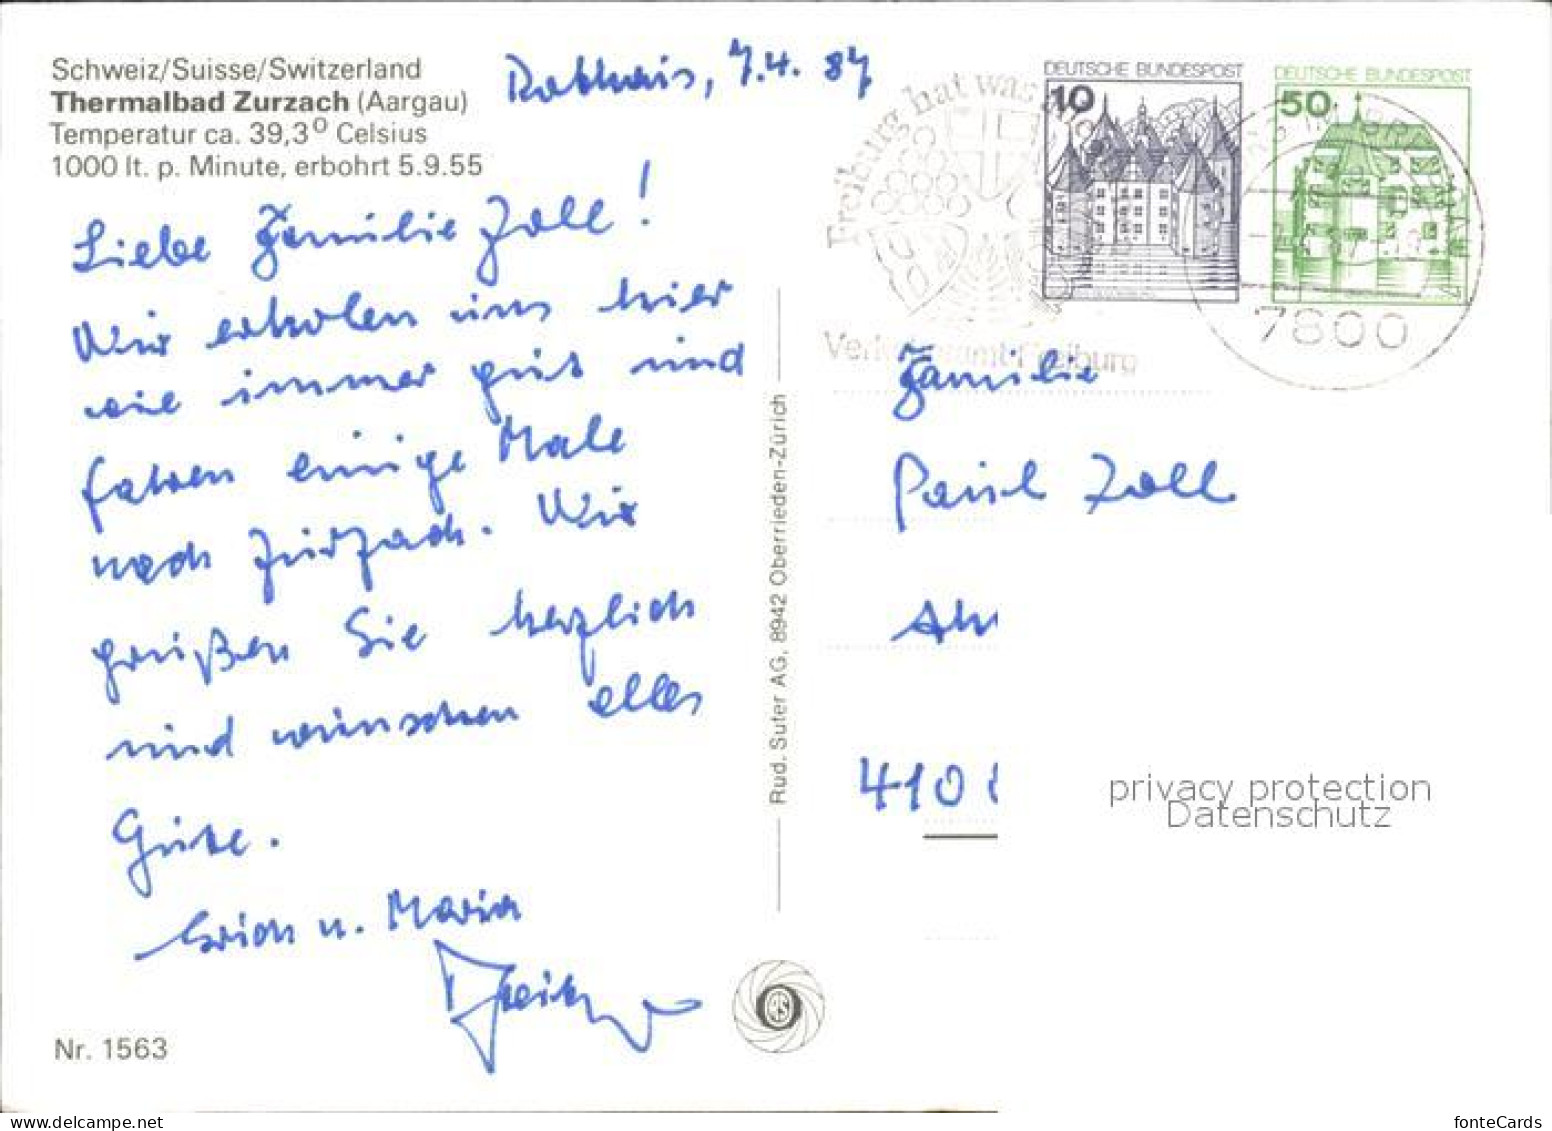 Schweiz/Suisse/Switzerland
Thermalbad Zurzach (Aargau)
Temperatur ca. 39,3° Celsius
1000 lt. p. Minute, erbohrt 5.9.55
7.4. 87
Liebe Familie Zoll!
Wir erholen uns hier
wie immer gut und
fahren einige Male
nach Zurzach. Wir
grüßen Sie herzlich
und wünschen alles
Gute.
Erich u. Maria
Nr. 1563
Rud. Suter AG, 8942 Oberrieden-Zürich
DEUTSCHE BUNDESPOST
10
DEUTSCHE BUNDESPOST
50
Freiburg hat was
Verkehrsamt Freiburg
7800
Familie
Paul Zoll
410
privacy protection
Datenschutz
www.delcampe.net
fonteCards